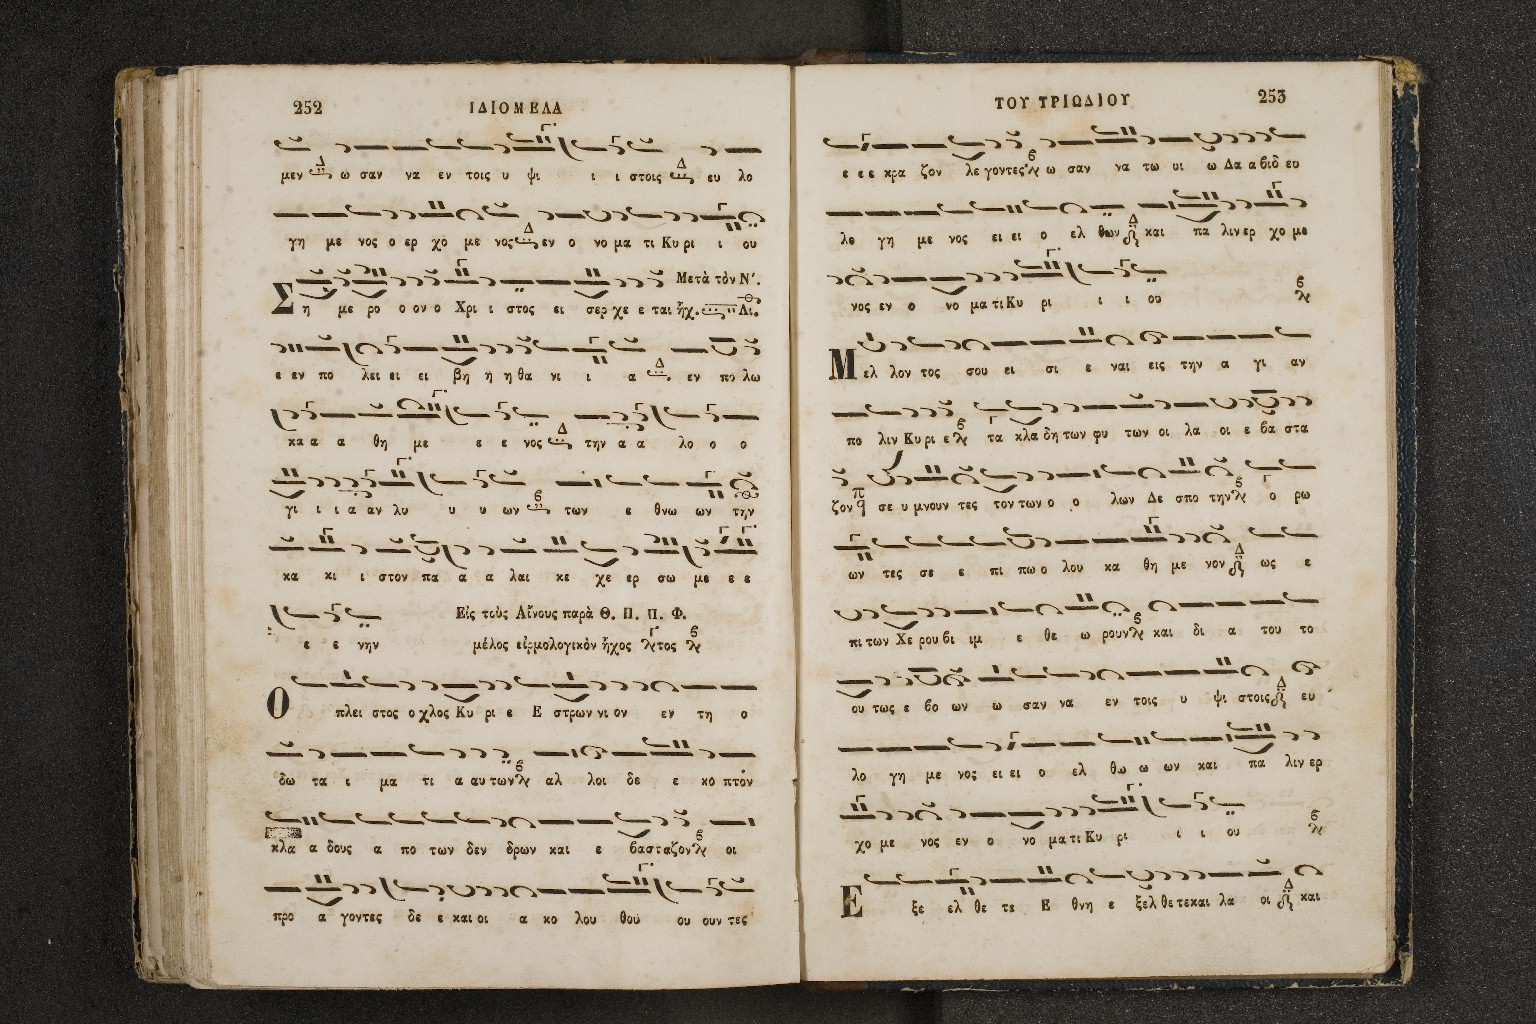 252 ΙΔΙΟΜΕΛΑ
μεν ω σαν να εν τοις υ ψι ι ι στοις ευ λο
γη με νος ο ερ χο με νος εν ο νο μα τι Κυ ρι ι ου
Μετὰ τὸν Ν΄.
Σ η με ρο ο ον ο Χρι ι στος ει σερ χε ε ται ἦχ. Δι.
ε εν πο λει ει ει βη η η θα νι ι α εν πω λω
κα α α θη με ε ε νος την α α λο ο ο
γι ι ι α αν λυ υ υ ων των ε θνω ων την
κα κι ι στον πα α α λαι κε χε ερ σω με ε ε
Εἰς τοὺς Αἴνους παρὰ Θ. Π. Π. Φ.
ε ε νην μέλος εἱρμολογικὸν ἦχος τος
Ο πλει στος ο χλος Κυ ρι ε Ε στρων νι ον εν τη ο
δω τα ι μα τι α αυ των αλ λοι δε ε κο πτον
κλα α δους α πο των δεν δρων και ε βασταζον οι
προ α γοντες δε ε και οι α κο λου θου ου ουν τες
ΤΟΥ ΤΡΙΩΔΙΟΥ 253
ε ε ε κρα ζον λε γοντες ω σαν να τω υι ω Δα α βιδ ευ
λο γη με νος ει ει ο ελ θων και πα λιν ερ χο με
νος εν ο νο μα τι Κυ ρι ι ι ου
Μ ελ λον τος σου ει σι ε ναι εις την α γι αν
πο λιν Κυ ρι ε τα κλα δη των φυ των οι λα οι ε βα στα
ζον σε υ μνουν τες τον των ο ο λων Δε σπο την ο ρω
ων τες σε ε πι πω ο λου κα θη με νον ως ε
πι των Χε ρου βι ιμ ε θε ω ρουν και δι α του το
ου τως ε βο ων ω σαν να εν τοις υ ψι στοις ευ
λο γη με νος ει ει ο ελ θω ω ων και πα λιν ερ
χο με νος εν ο νο μα τι Κυ ρι ι ι ου
Ε ξε ελ θε τε Ε θνη ε ξελ θε τε και λα οι και